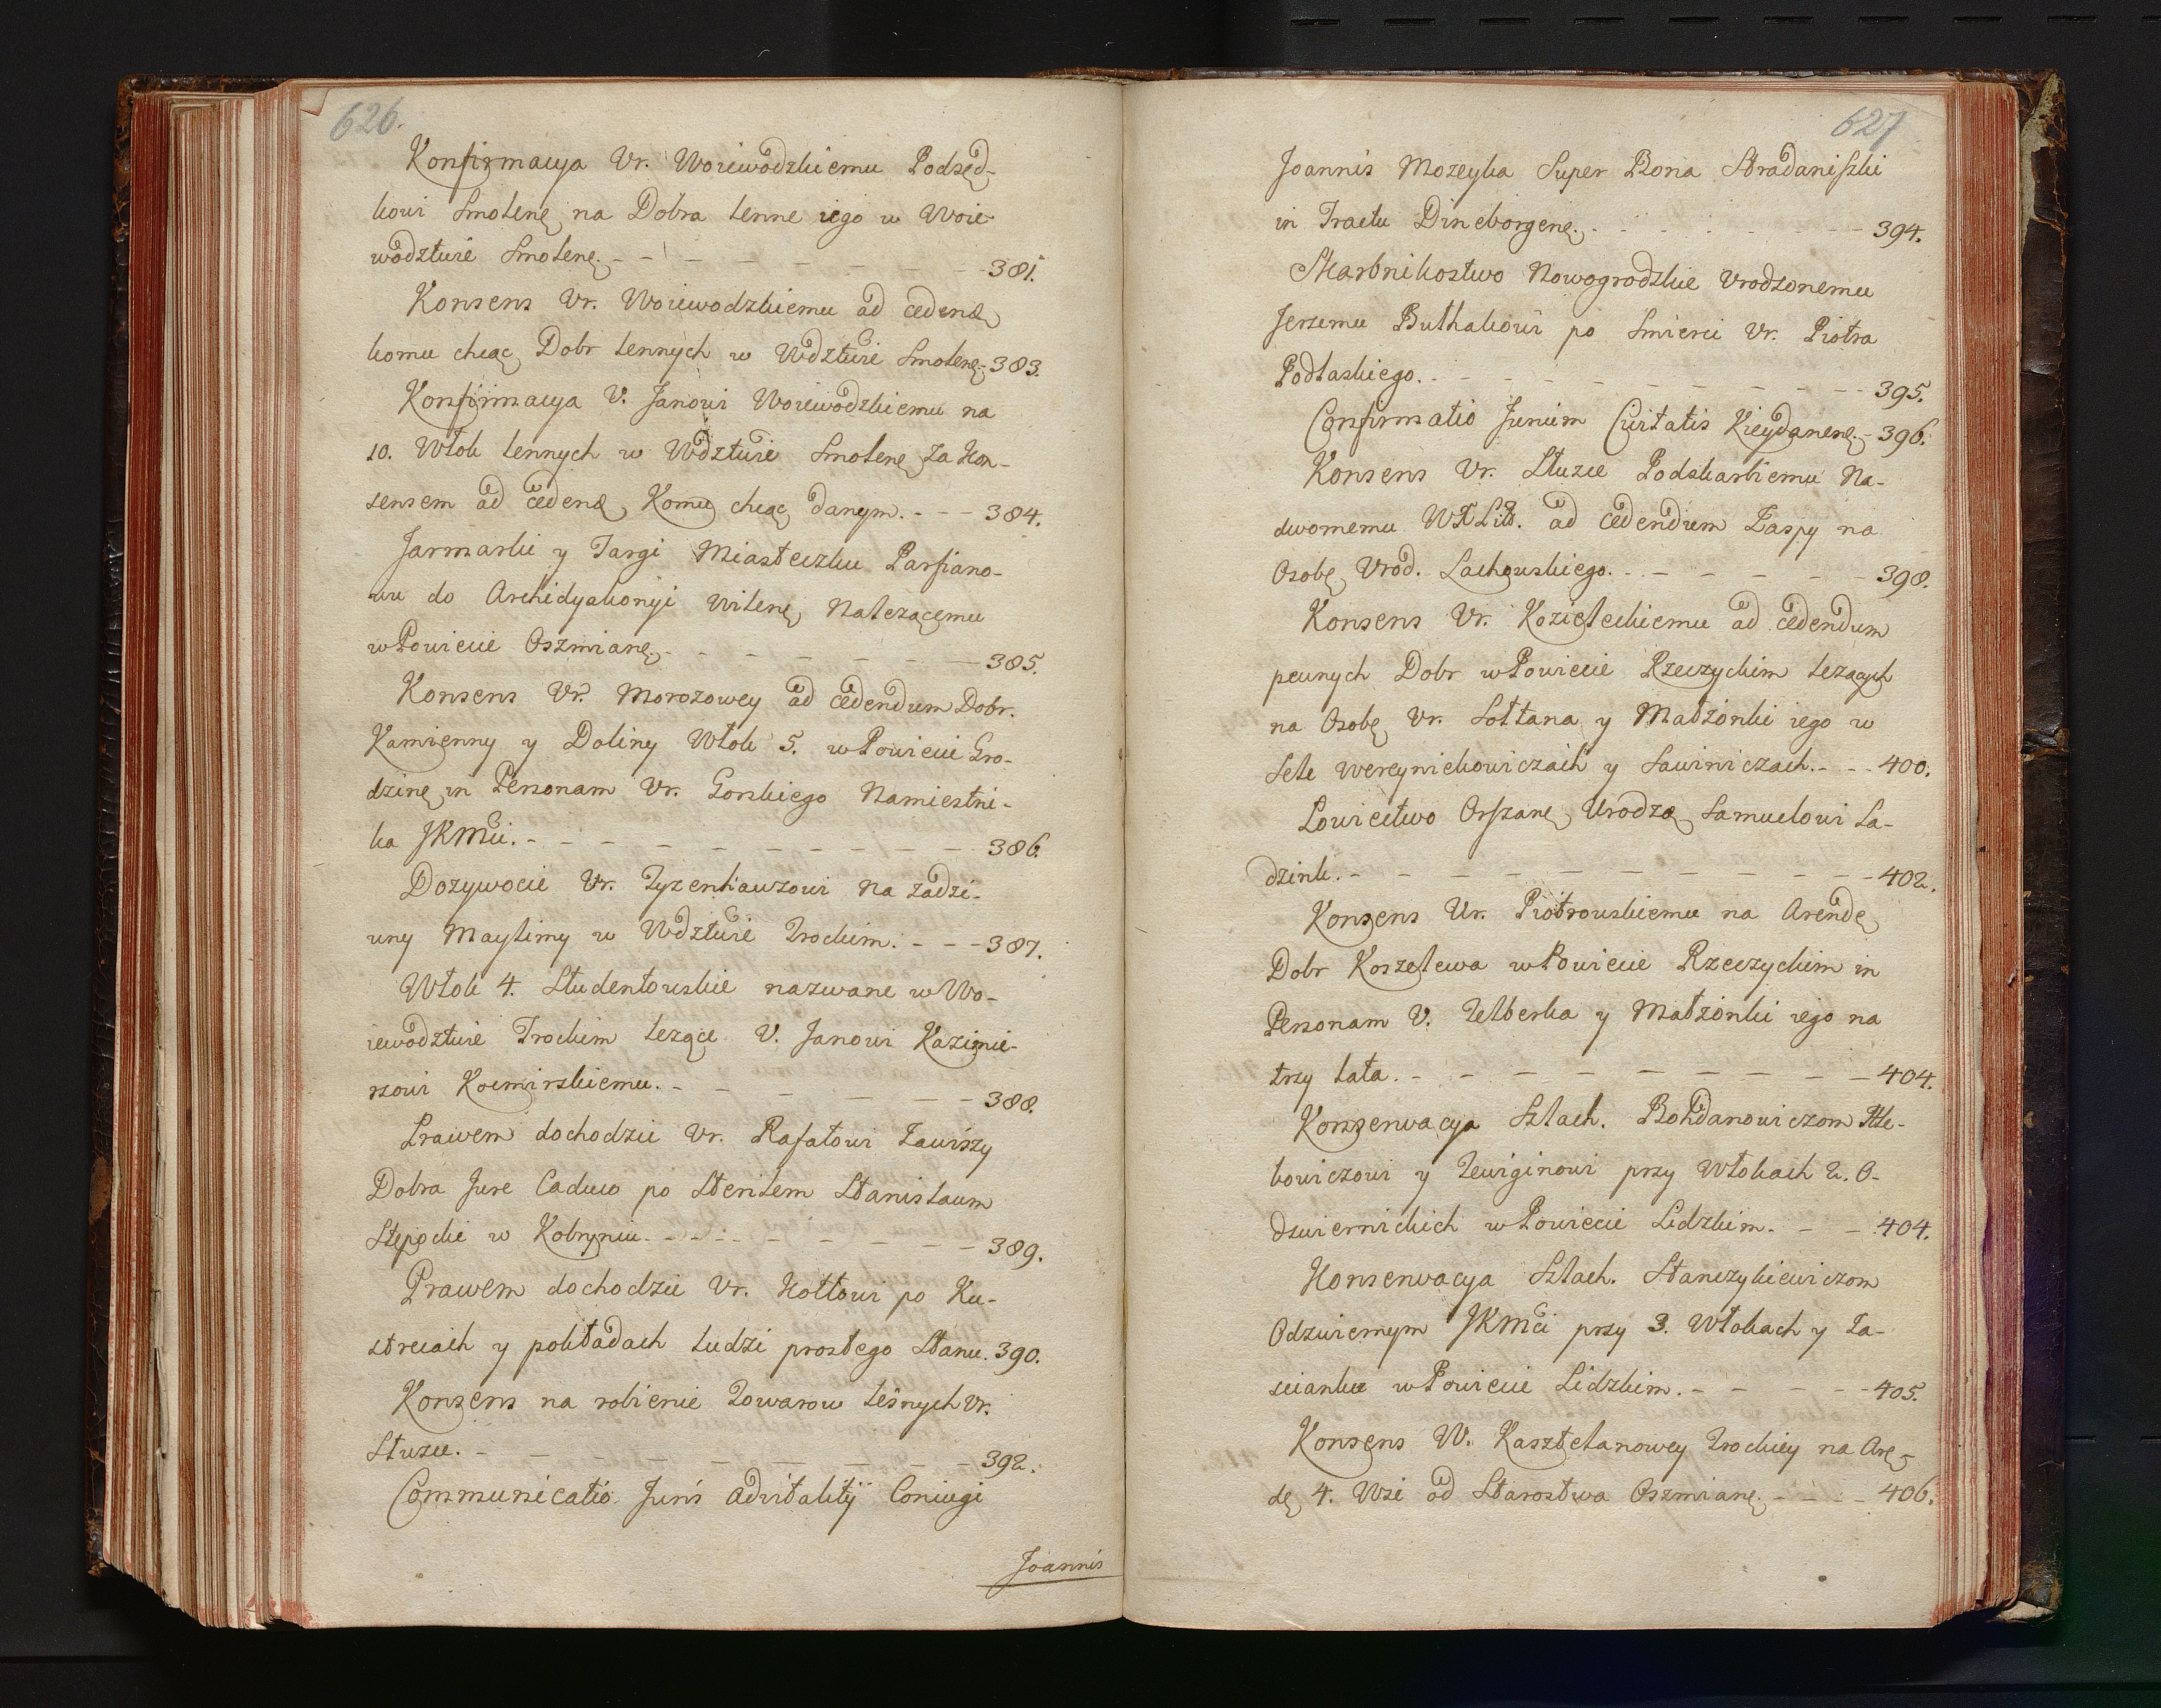 626.
Konfirmacya Vr. Woiewodzkiemu Podsęd-
kowi Smolenę na Dobra lenne iego w Woie-
wodztwie Smolenę. - - - - - - - - 381.
Konsens Vr. Woiewodzkiemu ad cedenđ
komu chcąc Dobr lennych w Wdztwie Smolenę. 383.
Konfirmacya V. Janowi Woiewodzkiemu na
10. Włok lennych w Wdztwie Smolenę za Kon-
sensem ad cedenđ Komu chcąc danym. - - - 384.
Jarmarki y Targi Miasteczku Parfiano-
wu do Archidyakonyi Wilenę Należącemu
w Powiecie Oszmianę. - - - - - - - 385.
Konsens Vr. Morozowey ad cedendum Dobr.
Kamienny y Doliny Włok 5. w Powiecie Gro-
dzinę in Personam Vr. Gorskiego Namiestni-
ka JKMci. - - - - - - - - - - 386.
Dozywocie Vr. Tyzenhauzowi na Zadzi-
uny Maylimy w Wdztwie Trockim. - - - 387.
Włok 4. Studentowskie nazwane w Wo-
iewodztwie Trockim lezące V. Janowi Kazimie-
rzowi Kocmirskiemu. - - - - - - - 388.
Prawem dochodzic Vr. Rafałowi Zawiszy
Dobra Jure Caduco po Sterilem Stanisławm
Stępocki w Kobryniu. - - - - - - - 389.
Prawem dochodzic Vr. Hołłowi po Ku-
strciach y pokładach ludzi prostego Stanu. 390.
Konsens na robienie Towarow leśnych Vr.
Słuzce. - - - - - - - - - - 392.
Communicatio Juris advitalitij Coniugi
Joannis
627
Joannis Mozeyka Super Bona Stradaniszki
in Tractu Dineborgenę. - - - - - - - 394.
Skarbnikostwo Nowogrodzkie Vrodzonemu
Jerzemu Buthakowi po Smierci Vr. Piotra
Podlaskiego. - - - - - - - - - - 395.
Confirmatio Jurium Civitatis Kieydanenę. - 396.
Konsens Vr. Słuzce Podskarbiemu Na-
dwornemu WXLitt. ad cedendum Zaspy na
Osobę Vrod. Lachowskiego. - - - - - - 398.
Konsens Vr. Kozieleckiemu ad cedendum
pewnych Dobr w Powiecie Rzeczyckim lezących
na Osobę Vr. Sołtana y Małżonki iego w
Sele Wereynickowiczach y Sawiniczach. - - - 400.
Łowiectwo Orszanę Urodzo Samuelowi La-
dzink. - - - - - - - - - - - 402.
Konsens Ur. Piotrowskiemu na Arendę
Dobr Koszelewa w Powiecie Rzeczyckim in
Personam V. Zelberka y Małżonki iego na
trzy lata. - - - - - - - - - - 404.
Konserwacya Szlach. Bohdanowiczom Hle-
bowiczowi y Zewiginowi przy Włokach 2. O-
dwiernickich w Powiecie Lidzkim. - - 404.
Konserwacya Szlach. Stanczykiewiczom
Odzwiernym JKMci przy 3. Włokach y Za-
scianku w Powiecie Lidzkim. - - - - - 405.
Konsens W. Kasztelanowey Trockiey na Arę-
dę 4. Wsi od Starostwa Oszmianę. - - - - 406.